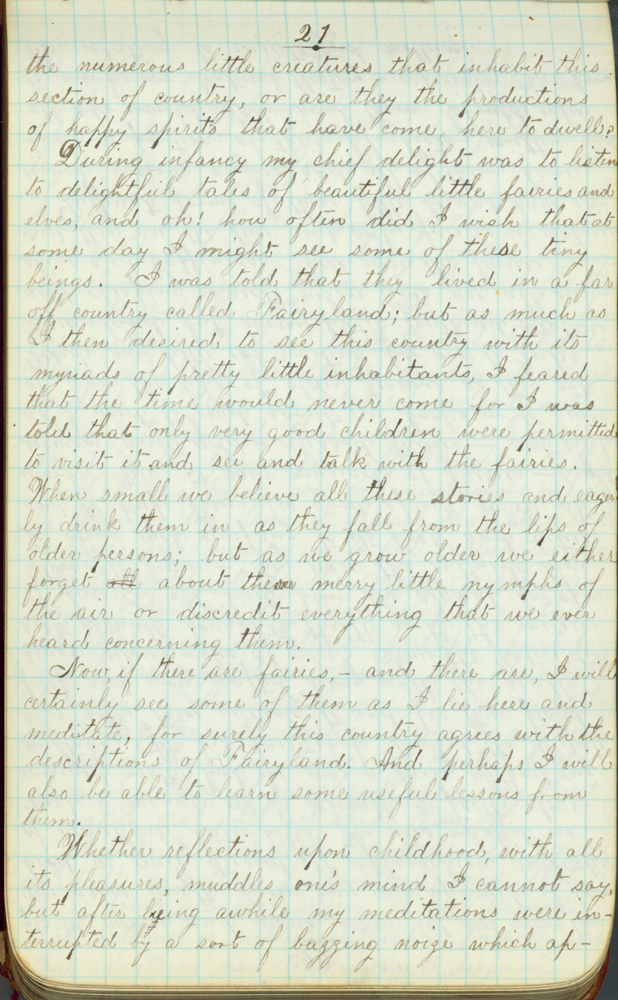 21
the numerous little creatures that inhabit this
section of country, or are they the productions
of happy spirits that have come here to dwell?
During infancy my chief delight was to listen
to delightful tales of beautiful little fairies and
elves, and oh! how often did I wish that at
some day I might see some of these tiny
beings. I was told that they lived in a far
off country called Fairyland; but as much as
I then desired to see this country with its
myriads of pretty little inhabitants, I feared
that the time would never come for I was
told that only very good children were permitted
to visit it and see and talk with the fairies.
When small we believe all these stories and eager
ly drink them in as they fall from the lips of
older persons; but as we grow older we either
forget all about these merry little nymphs of
the air or discredit everything that we ever
heard concerning them.
Now, if there are fairies, - and there are, I will
certainly see some of them as I lie here and
meditate, for surely this country agrees with the
descriptions of Fairyland. And perhaps I will
also be able to learn some useful lessons from
them.
Whether reflections upon childhood, with all
its pleasures, muddles one's mind I cannot say,
but after lying awhile my meditations were in-
terrupted by a sort of buzzing noize which ap-